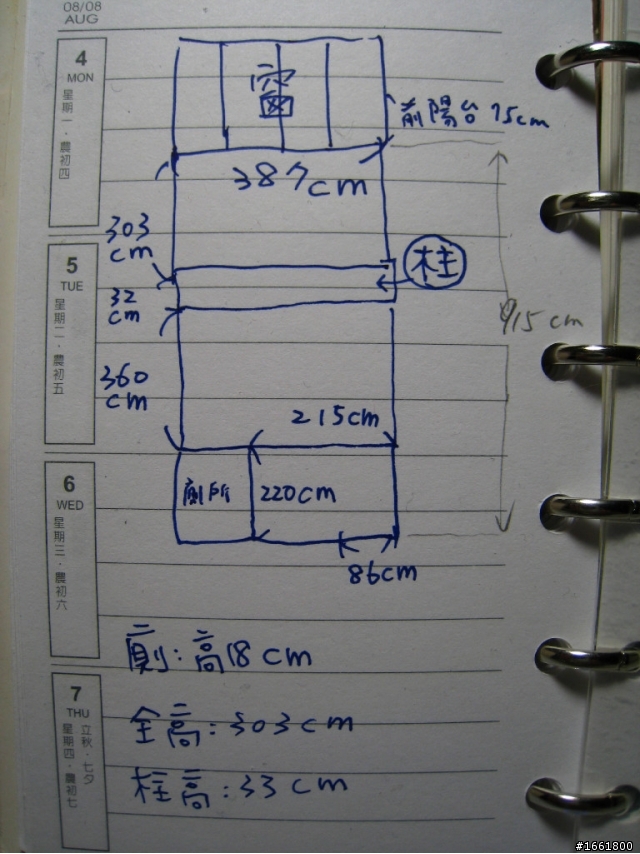 08/08
AUG
4
MON
星期一．農初四
窗
前陽台 75cm
387cm
303
cm
5
TUE
星期二．農初五
柱
32
cm
915 cm
360
cm
215cm
6
WED
星期三．農初六
廁所
220cm
86cm
廁：高18cm
7
THU
立秋．七夕
星期四．農初七
全高：303cm
柱高：33cm
#1661800